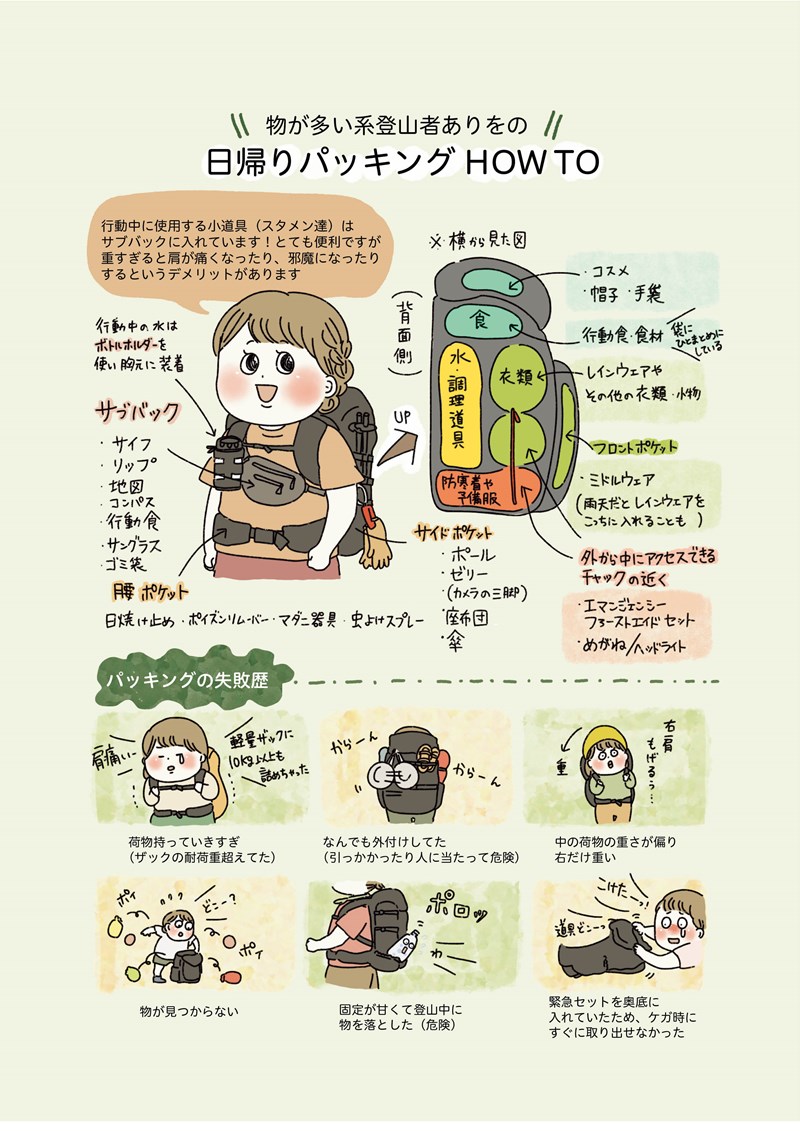 物が多い系登山者ありをの
日帰りパッキング HOW TO
行動中に使用する小道具（スタメン達）は
サブバックに入れています！とても便利ですが
重すぎると肩が痛くなったり、邪魔になったり
するというデメリットがあります
行動中の水は
ボトルホルダーを
使い胸元に装着
サブバック
・サイフ
・リップ
・地図
・コンパス
・行動食
・サングラス
・ゴミ袋
腰ポケット
日焼け止め・ポイズンリムーバー・マダニ器具・虫よけスプレー
UP
サイドポケット
・ポール
・ゼリー
・(カメラの三脚)
・座布団
・傘
※横から見た図
(背面側)
食
水・調理道具
衣類
防寒着や
予備服
・コスメ
・帽子・手袋
行動食・食材
袋に
ひとまとめに
している
・レインウェアや
その他の衣類・小物
フロントポケット
・ミドルウェア
(雨天だとレインウェアを
こっちに入れることも)
外から中にアクセスできる
チャックの近く
・エマンジェンシー
ファーストエイドセット
・めがね/ヘッドライト
パッキングの失敗歴
肩痛い…
軽量ザックに
10kg以上も
詰めちゃった
荷物持っていきすぎ
（ザックの耐荷重超えてた）
からーん
からーん
なんでも外付けしてた
（引っかかったり人に当たって危険）
重
右肩
もげるぅ…
中の荷物の重さが偏り
右だけ重い
ポイ
どこー？
ポイ
物が見つからない
ポロッ
わー
固定が甘くて登山中に
物を落とした（危険）
こけたーっ！
道具どこーっ
緊急セットを奥底に
入れていたため、ケガ時に
すぐに取り出せなかった